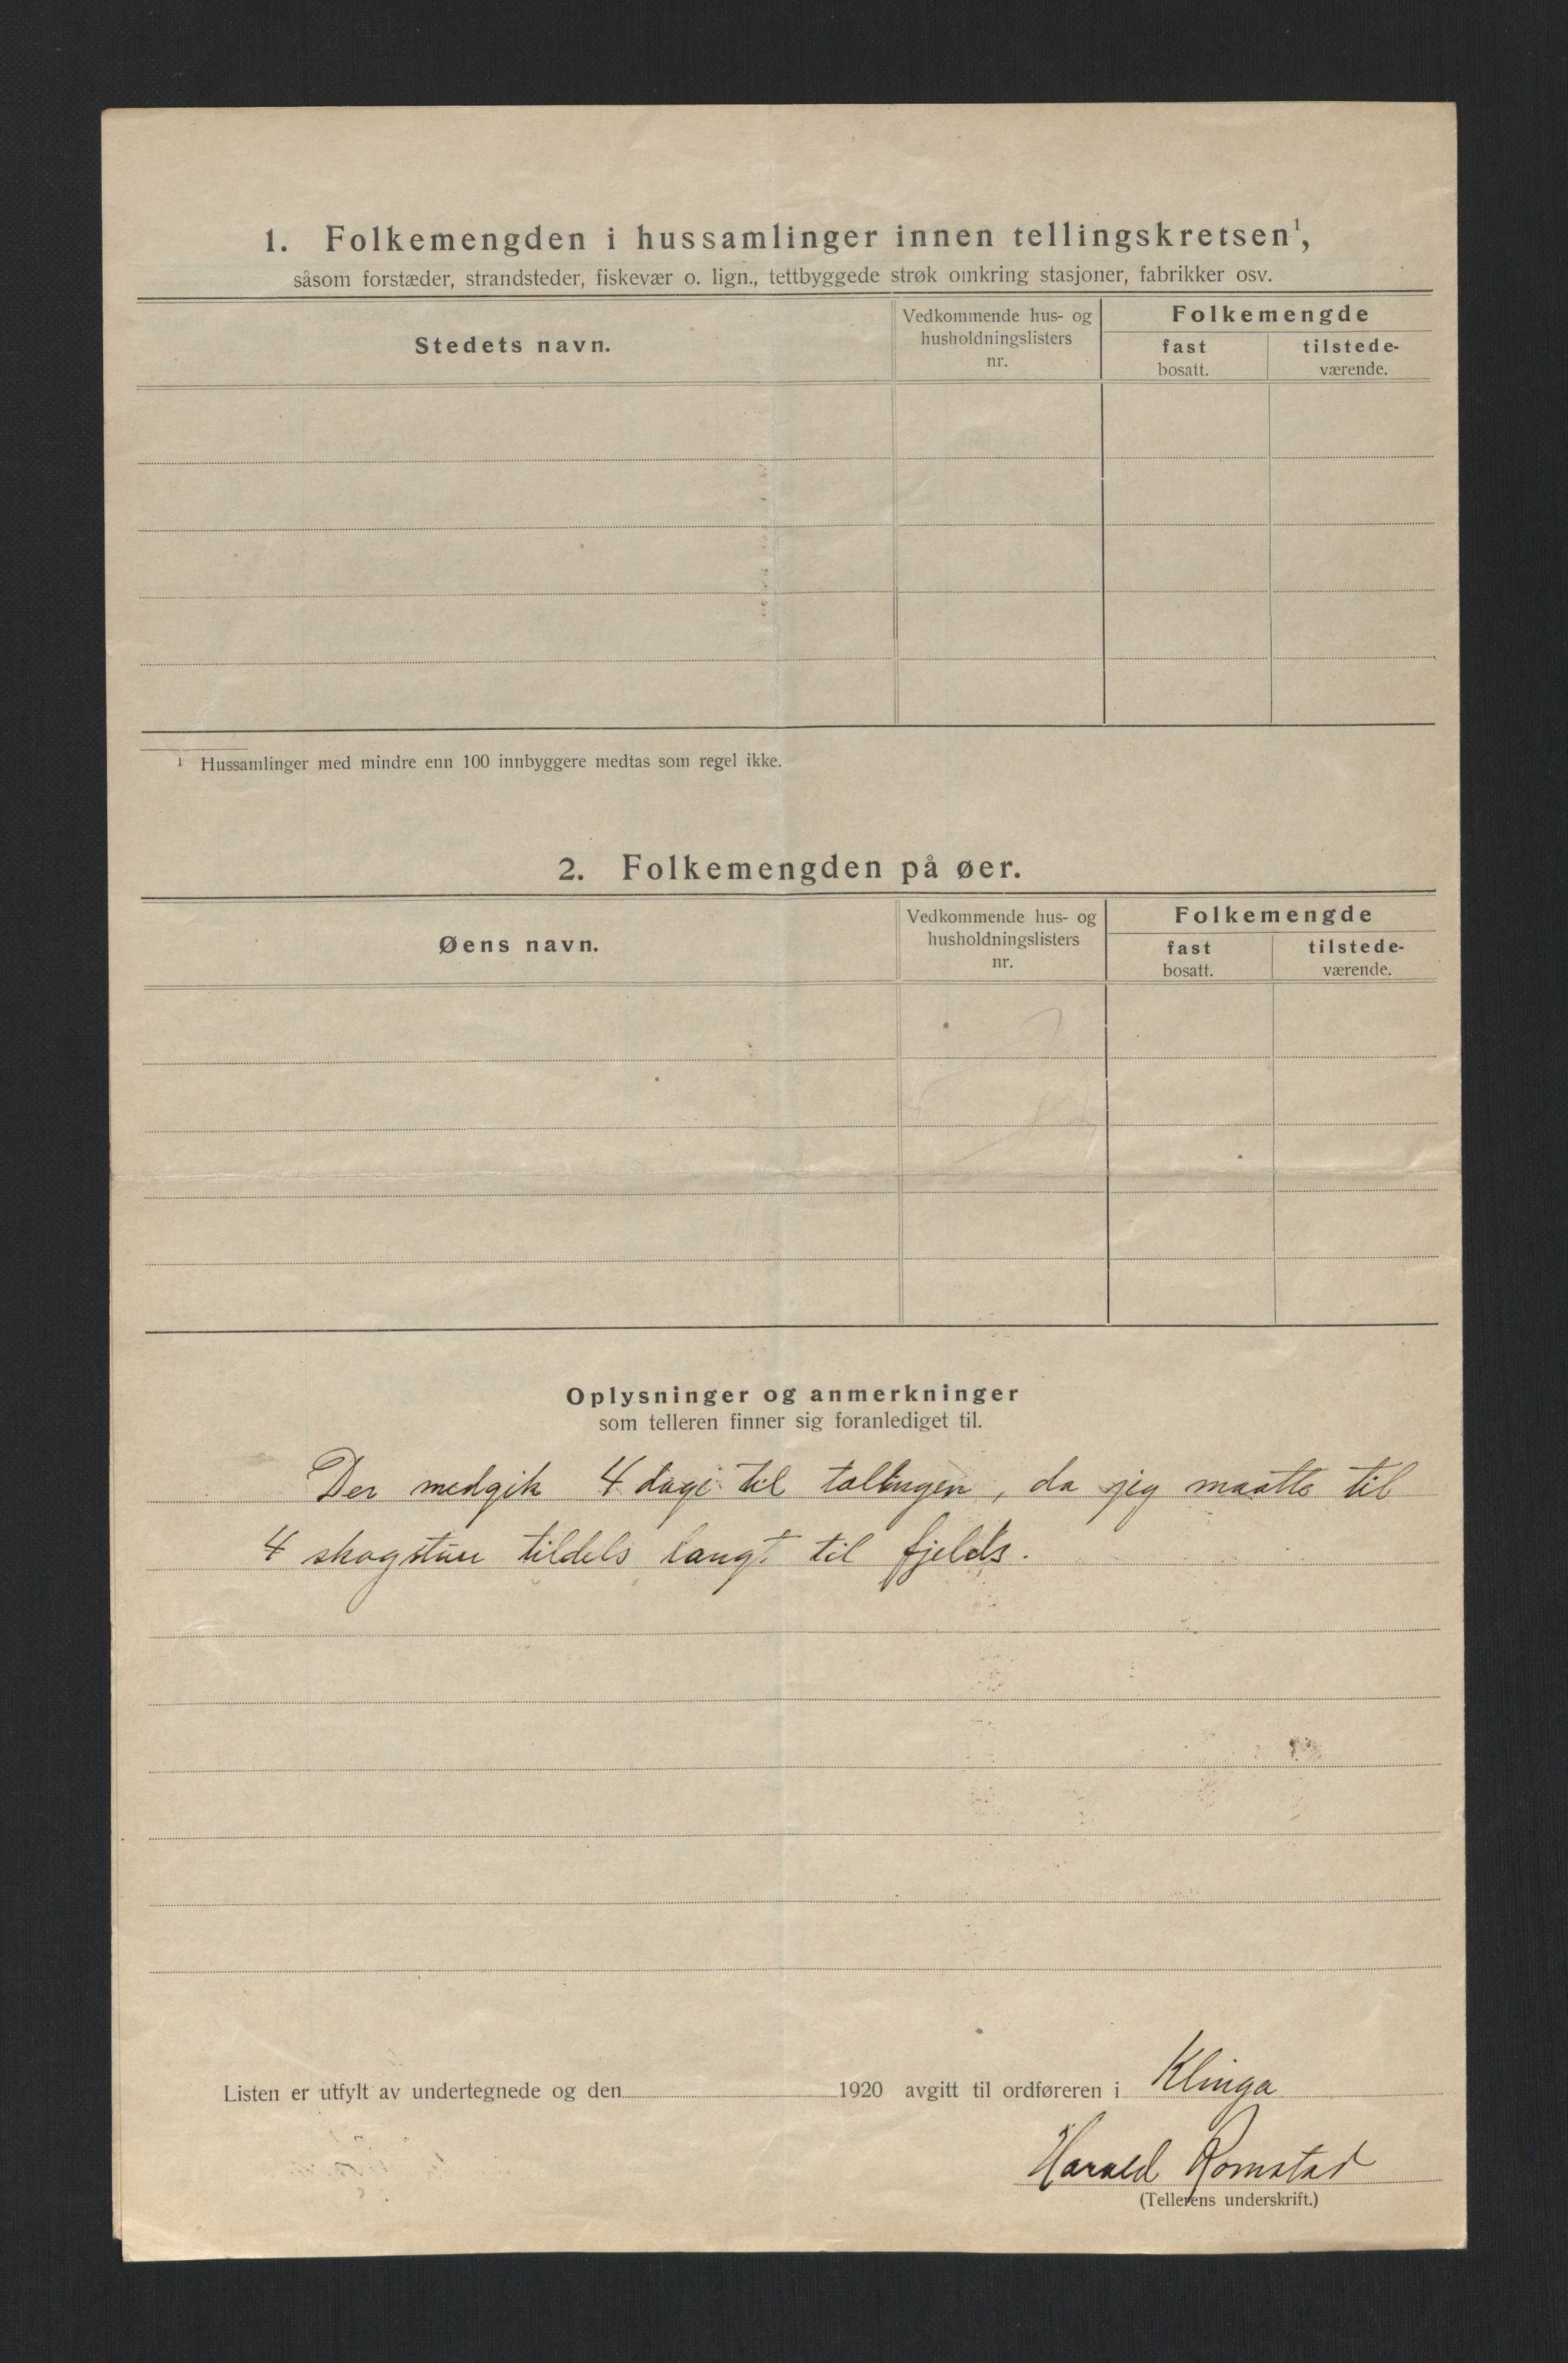 1. Folkemengden i hussamlinger innen tellingskretsen¹,
såsom forstæder, strandsteder, fiskevær o. lign., tettbyggede strøk omkring stasjoner, fabrikker osv.
Stedets navn.
Vedkommende hus- og
husholdningslisters
nr.
Folkemengde
fast
bosatt.
tilstede-
værende.
¹ Hussamlinger med mindre enn 100 innbyggere medtas som regel ikke.
2. Folkemengden på øer.
Øens navn.
Vedkommende hus- og
husholdningslisters
nr.
Folkemengde
fast
bosatt.
tilstede-
værende.
Oplysninger og anmerkninger
som telleren finner sig foranlediget til.
Der medgik 4 dage til tællingen, da jeg maatte til
4 skogstuer tildels langt til fjelds.
Listen er utfylt av undertegnede og den 1920 avgitt til ordføreren i Klinga
Harald Romstad
(Tellerens underskrift.)